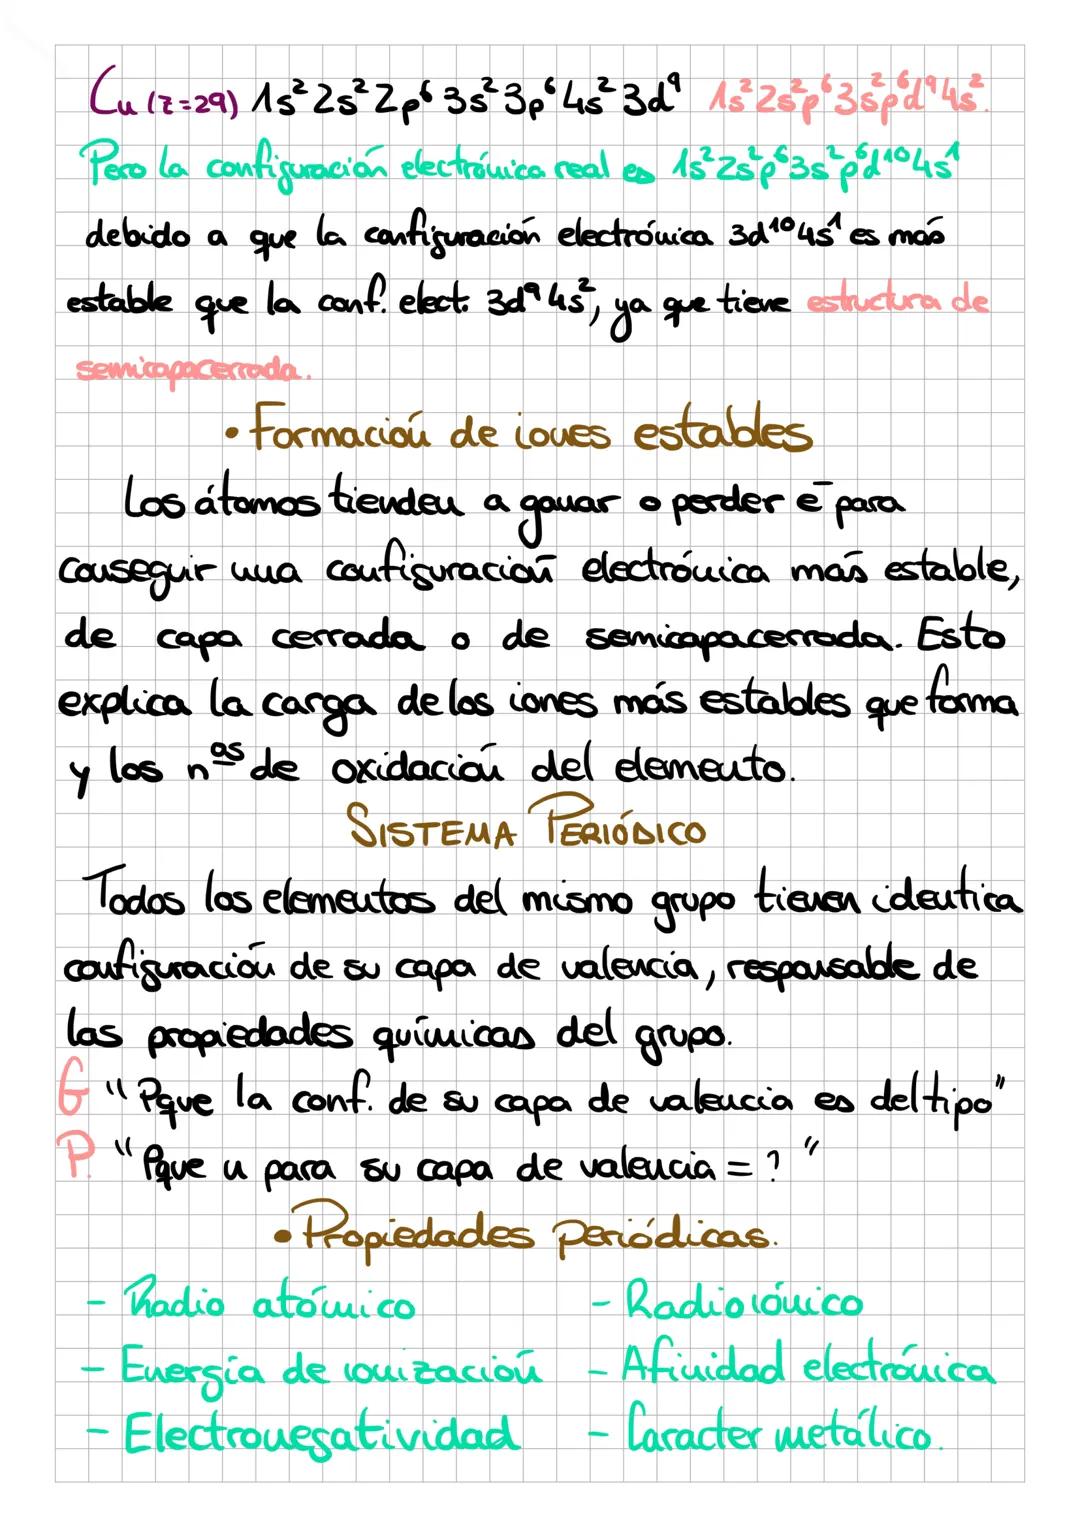 Cu (Z=29) 1s² 2s² 2p⁶ 3s² 3p⁶ 4s² 3d⁹ 1s² 2s² p⁶ 3s² p⁶ d⁹ 4s².
Pero la configuración electrónica real es 1s² 2s² p⁶ 3s² p⁶ d¹⁰ 4s¹
debido a que la configuración electrónica 3d¹⁰ 4s¹ es más
estable que la conf. elect. 3d⁹ 4s², ya que tiene estructura de
semicapacerrada.
• Formación de iones estables
Los átomos tienden a ganar o perder e⁻ para
conseguir una configuración electrónica más estable,
de capa cerrada o de semicapacerrada. Esto
explica la carga de los iones más estables que forma
y los nºs de oxidación del elemento.
SISTEMA PERIÓDICO
Todos los elementos del mismo grupo tienen identica
configuración de su capa de valencia, responsable de
las propiedades químicas del grupo.
G "Pque la conf. de su capa de valencia es del tipo"
P. "Pque n para su capa de valencia = ? "
• Propiedades periódicas.
- Radio atómico - Radio iónico
- Energía de ionización - Afinidad electrónica
- Electronegatividad - Caracter metálico.